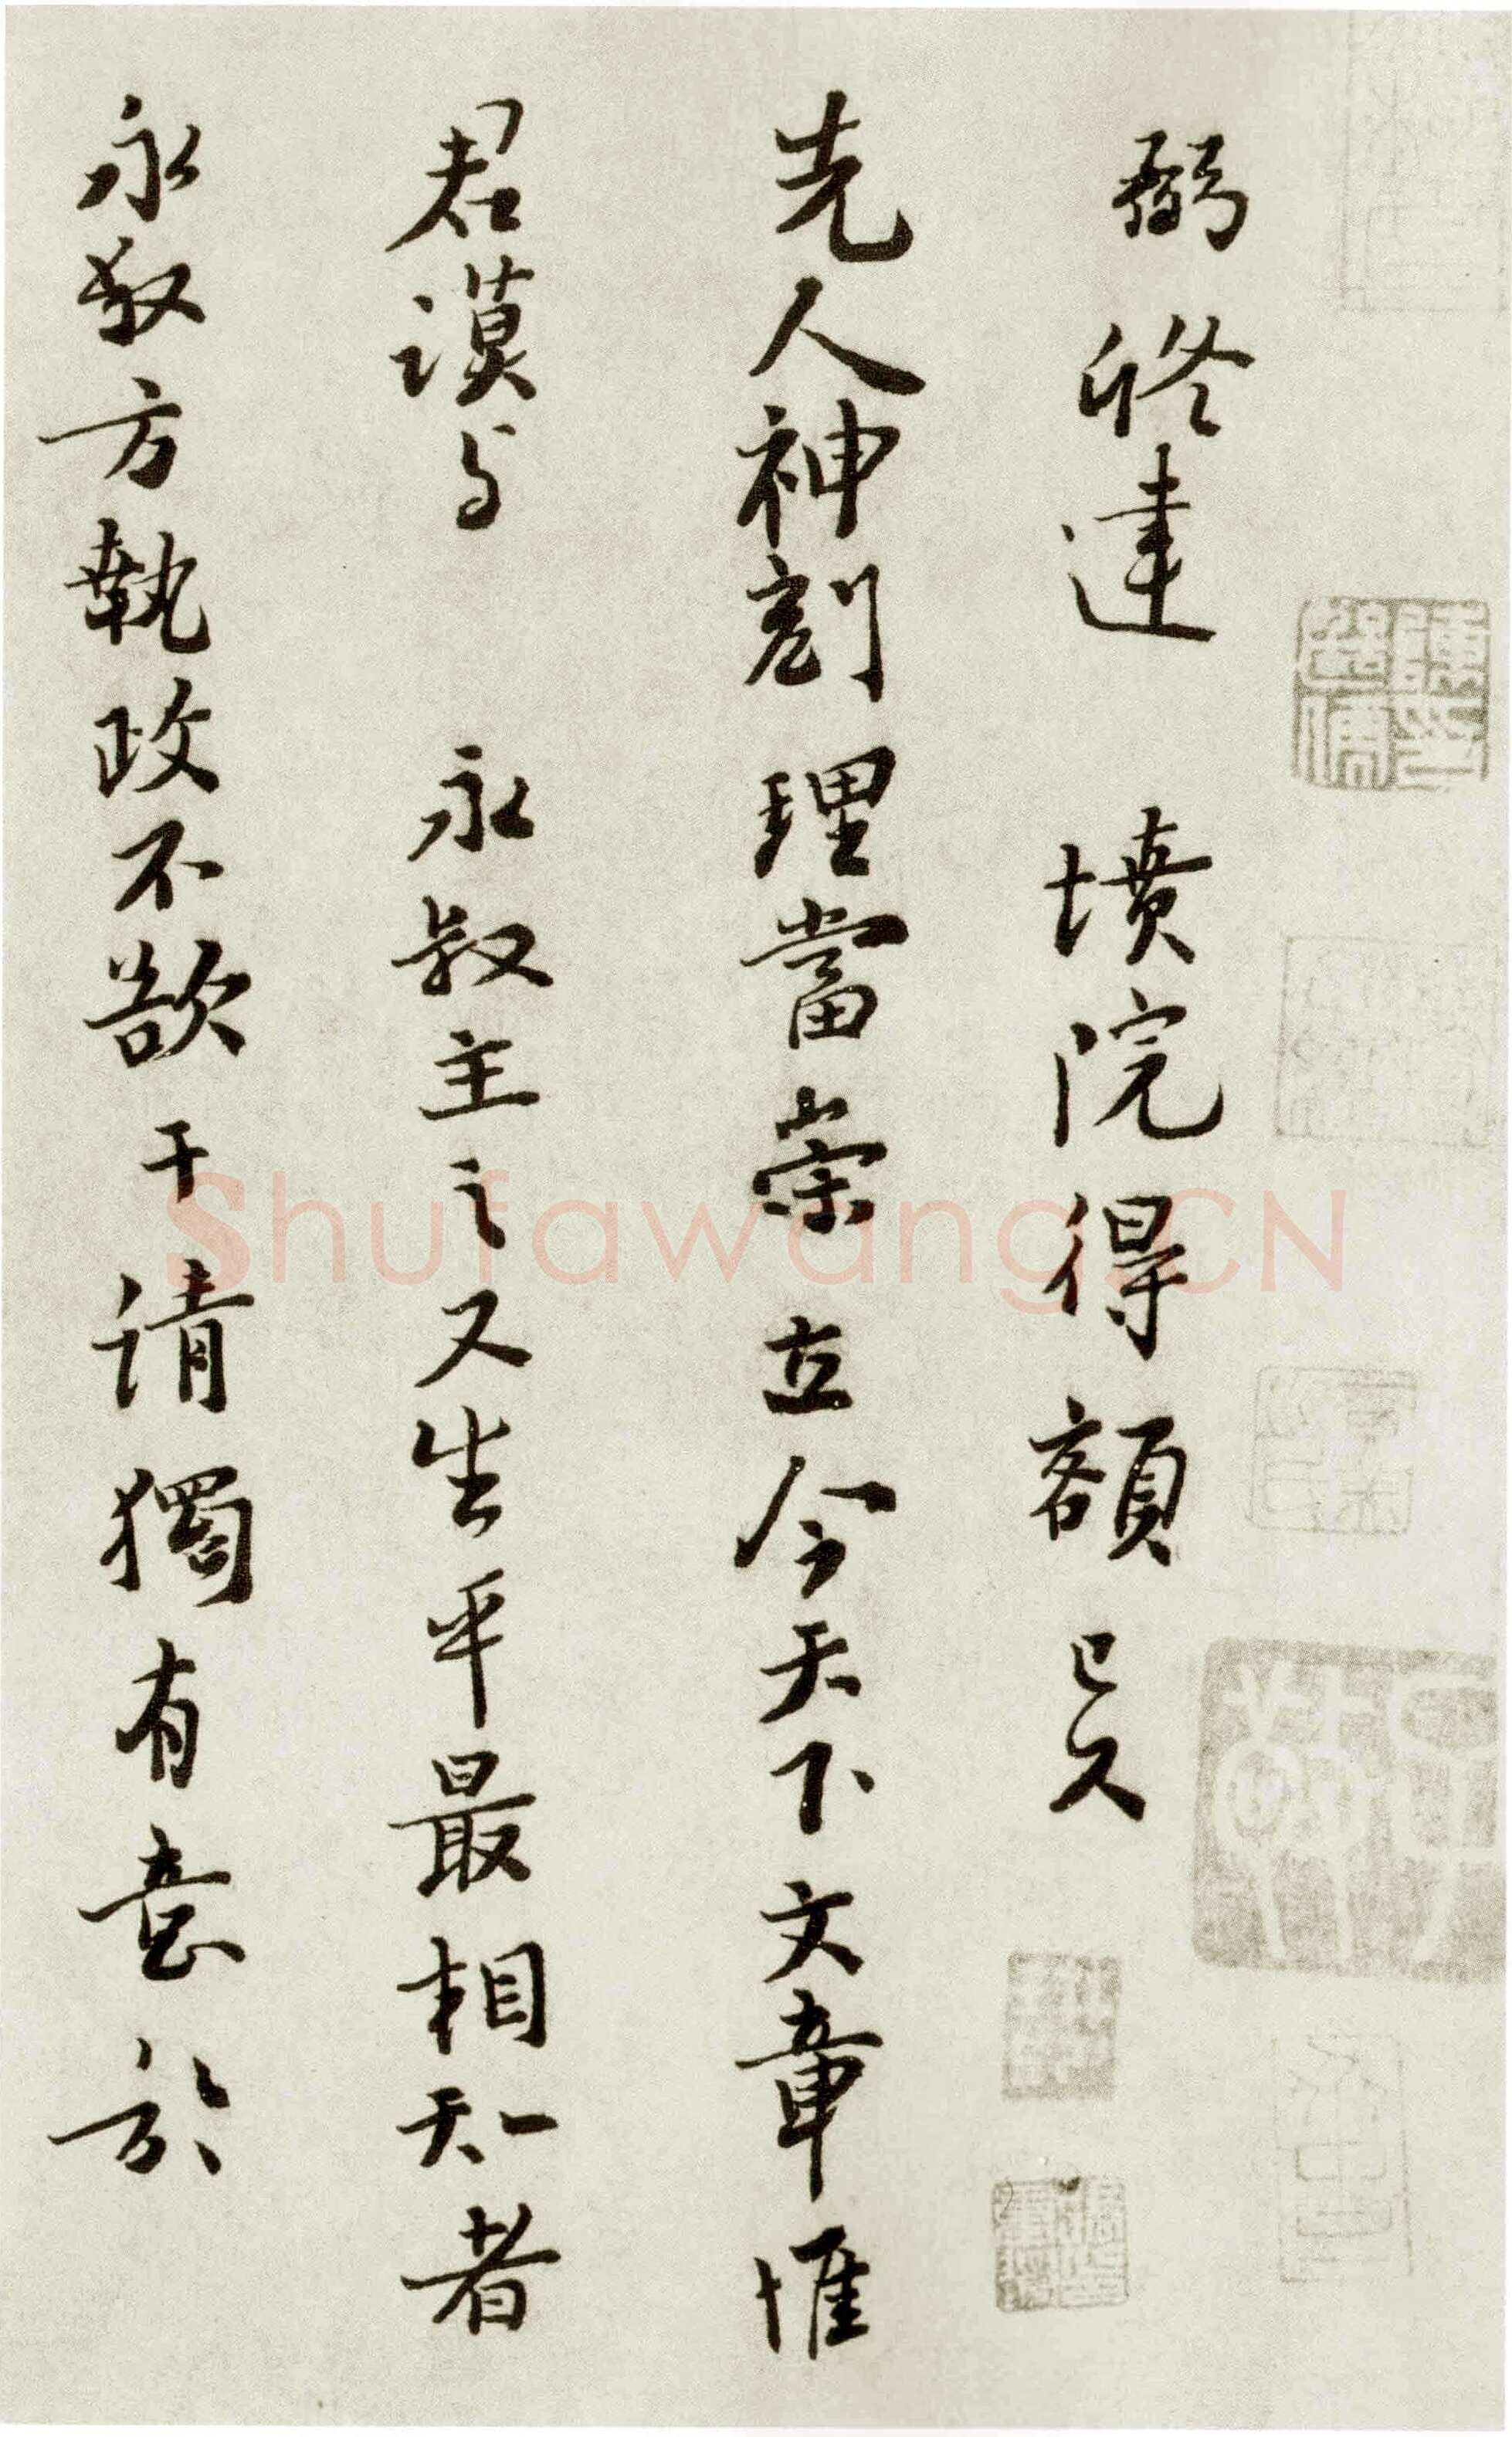 弼脩建 墳院得額已久
先人神刻理當崇立今天下文章惟
君謨与 永叔主之又生平最相知者
永叔方執政不欲干請獨有意於
Shufawang.CN